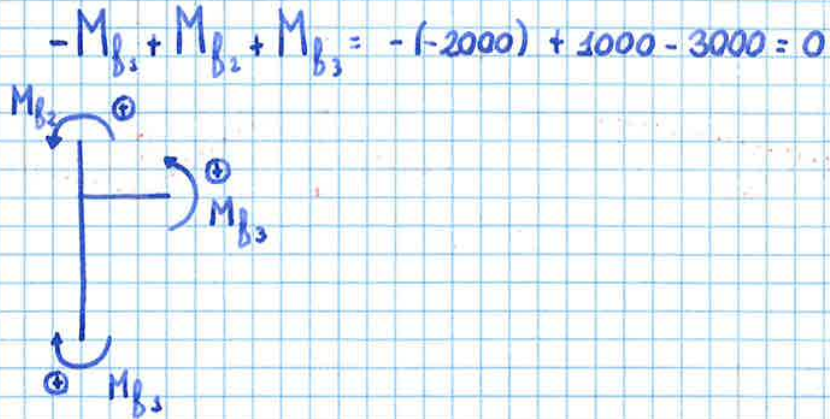 -Mβ₁ + Mβ₂ + Mβ₃ = -(-2000) + 1000 - 3000 = 0
Mβ₂ +
+
Mβ₃
+ Mβ₁